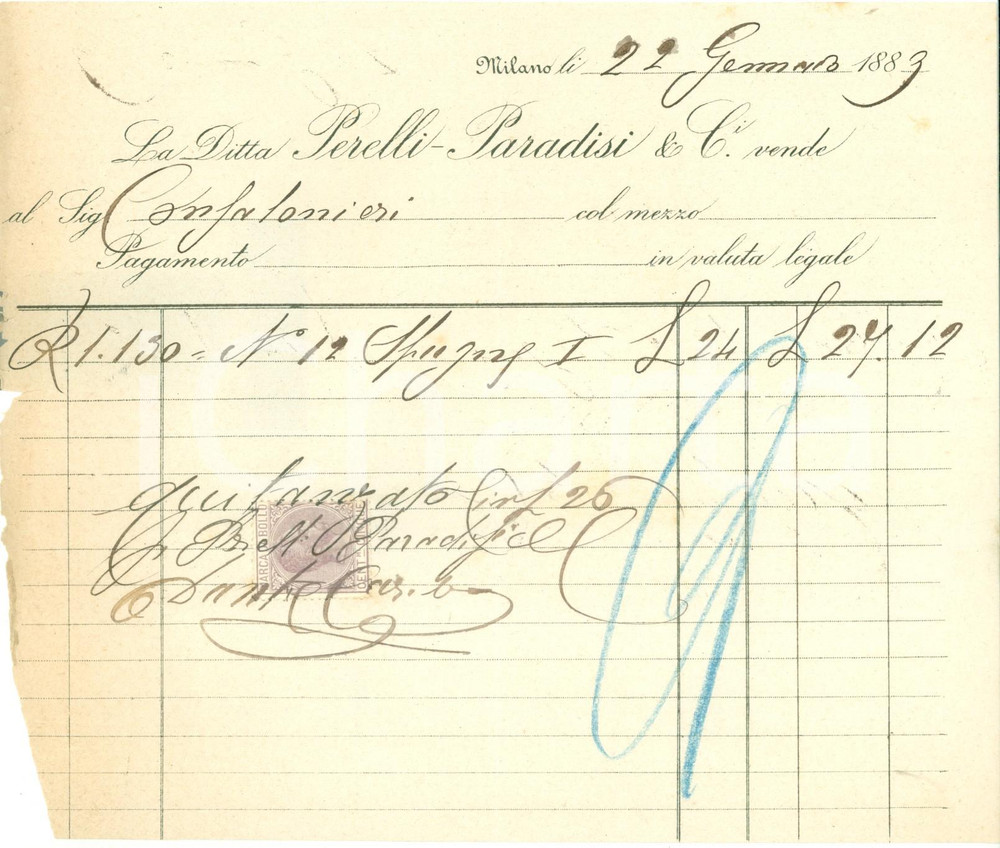 Milano li 22 Gennaio 1883
La Ditta Perelli-Paradisi & C.i vende
al Sig Confalonieri col mezzo
Pagamento in valuta legale
1.130 = N° 12 Spugne I L 24 L 27.12
quitanzato 26
Paradisi
Dante
MARCA DA BOLLO